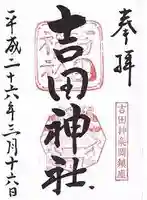 奉拝
吉田神社
平成二十六年三月十六日
吉田神楽岡鎮座